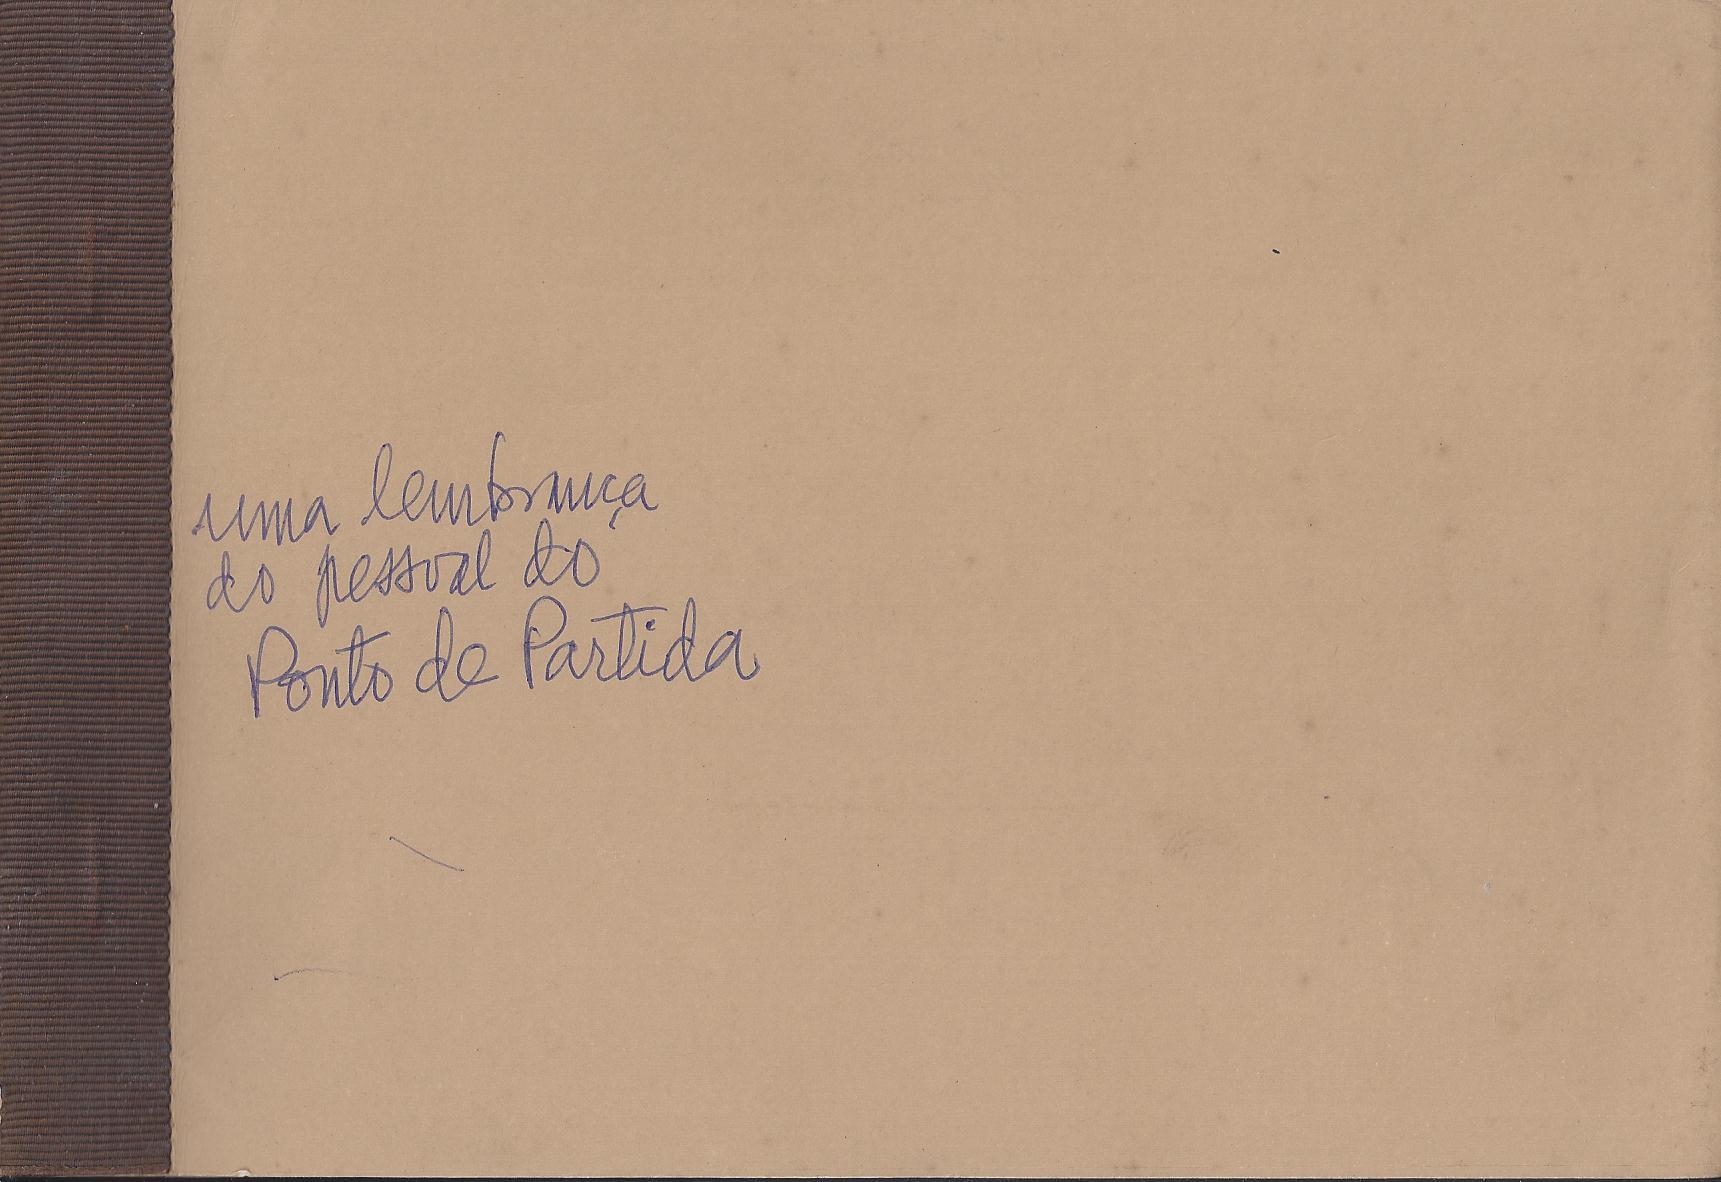 uma lembrança
do pessoal do
Ponto de Partida